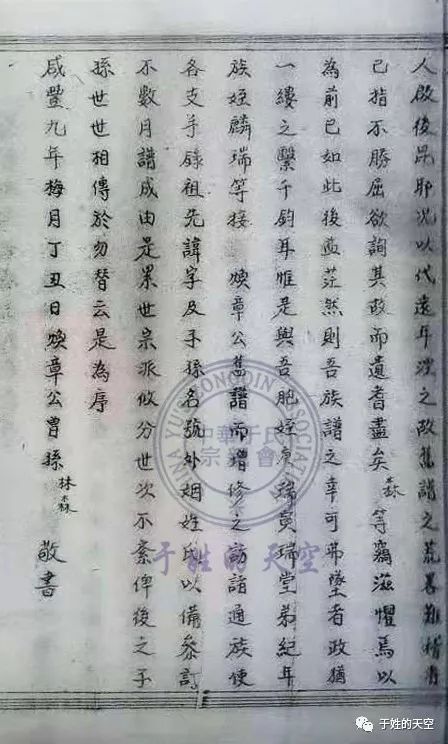 人啟後昆耶況以代遠年湮之故舊譜之荒畧難稽者
已指不勝屈欲詢其故而遺耆盡矣 森 等竊滋懼焉以
為前已如此後益茫然則吾族譜之幸可弗墜者政猶
一縷之繫千鈞耳惟是與吾胞姪 瑞 瑞堂弟紀年
族姪麟瑞等接 煥章公舊譜而增修之訪諸通族使
各支手錄祖先諱字及子孫名號外姻姓氏以備參訂
不數月譜成由是累世宗派攸分世次不紊俾後之子
孫世世相傳於勿替云是為序
咸豐九年梅月丁丑日煥章公曾孫 林 森 敬書
CHINA YU ZONGQIN ASSOCIATION
中華于氏
宗親會
于姓的天空
于姓的天空